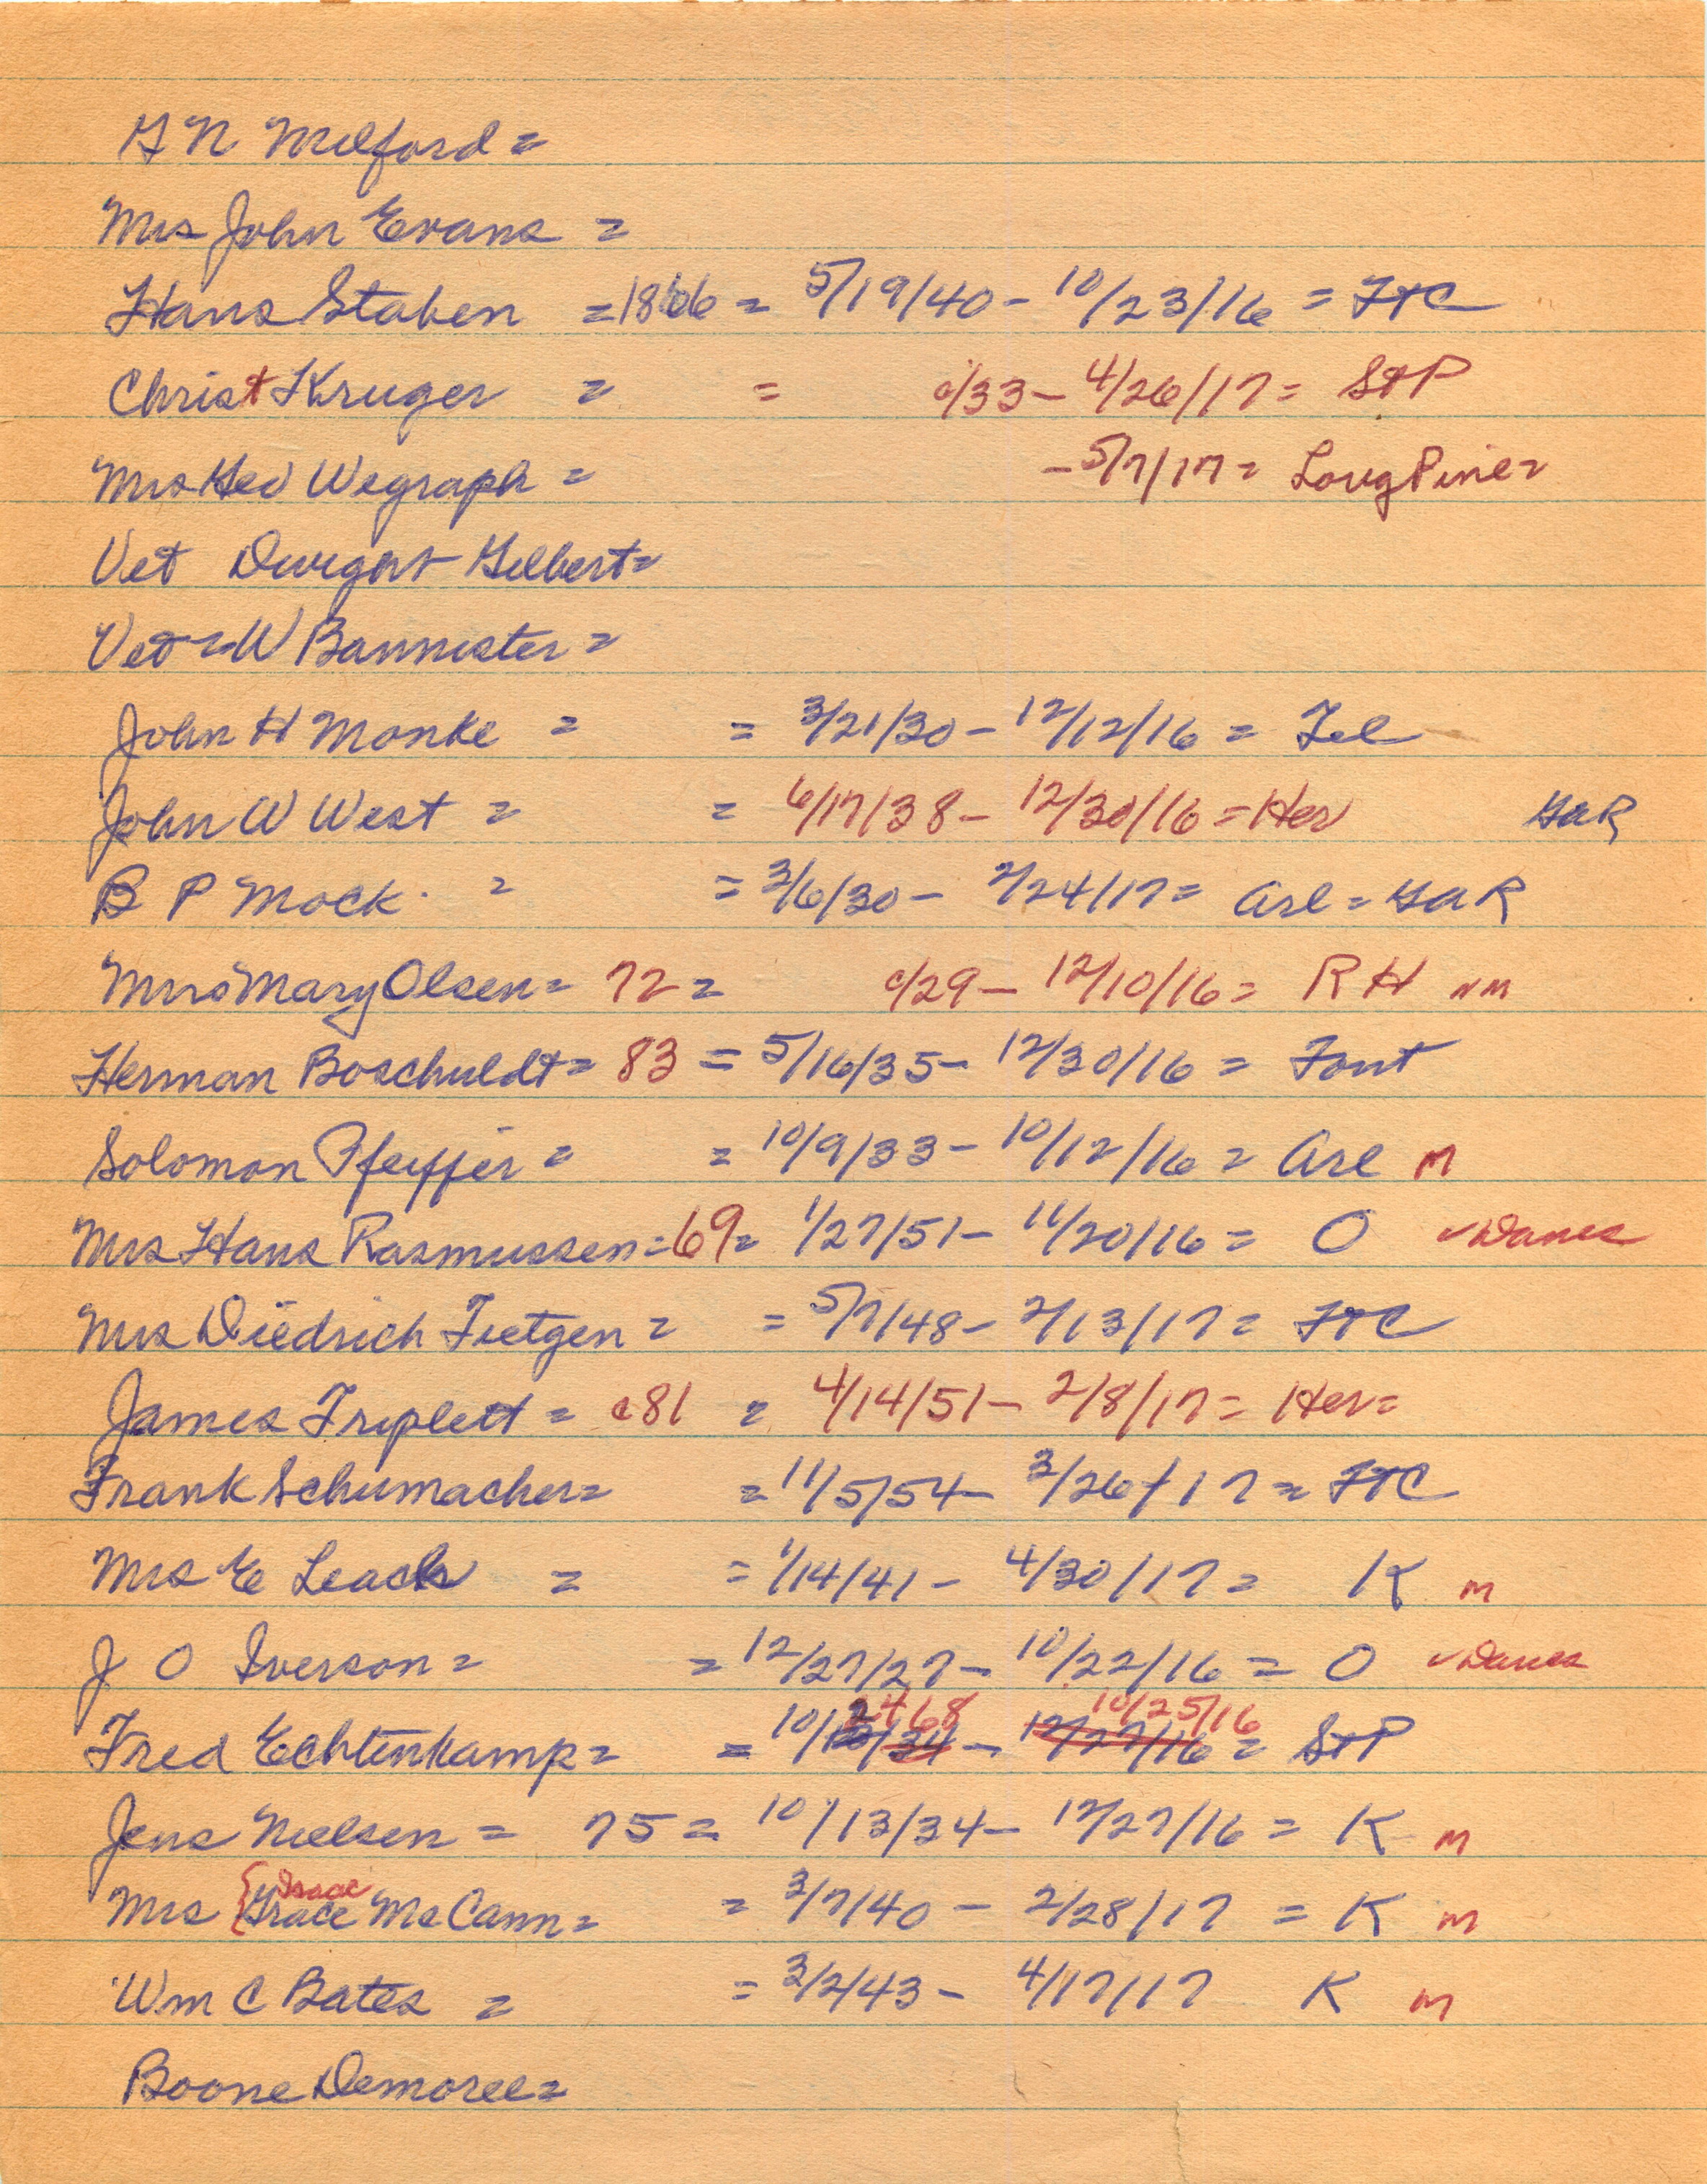 G N Milford =
Mrs John Evans =
Hans Staben = 1866 = 5/19/40 - 10/23/16 = FTC
Christ Kruger = = c/33 - 4/26/17 = StP
Mrs Geo Wegraph = - 5/7/17 = Long Pine =
Vet Dwight Gilbert =
Vet = W Bannister =
John H Monke = = 3/21/30 - 12/12/16 = Tel
John W West = = 6/17/38 - 12/30/16 = Her GAR
B P Mock. = = 3/6/30 - 2/24/17 = Arl = GAR
Mrs Mary Olsen = 72 = c/29 - 12/10/16 = R H NM
Herman Boschuldt = 83 = 5/16/35 - 12/30/16 = Font
Solomon Pfeiffer = = 10/9/33 - 10/12/16 = Arl M
Mrs Hans Rasmussen = 69 = 1/27/51 - 11/20/16 = O ✓Danes
Mrs Diedrich Tietgen = = 5/7/48 - 2/13/17 = FTC
James Triplett = c81 = 4/14/51 - 2/8/17 = Her =
Frank Schumacher = = 11/5/54 - 3/26/17 = FTC
Mrs E Leach = = 1/14/41 - 4/30/17 = K M
J O Iverson = = 12/27/27 - 10/22/16 = O ✓Danes
2468 10/25/16
Fred Echtenkamp = = 10/13/34 - 12/27/16 = StP
Jens Nielsen = 75 = 10/13/34 - 12/27/16 = K M
Isaac
Mrs {Grace McCann = = 3/7/40 - 2/28/17 = K M
Wm C Bates = = 3/2/43 - 4/17/17 K M
Boone Demoree =